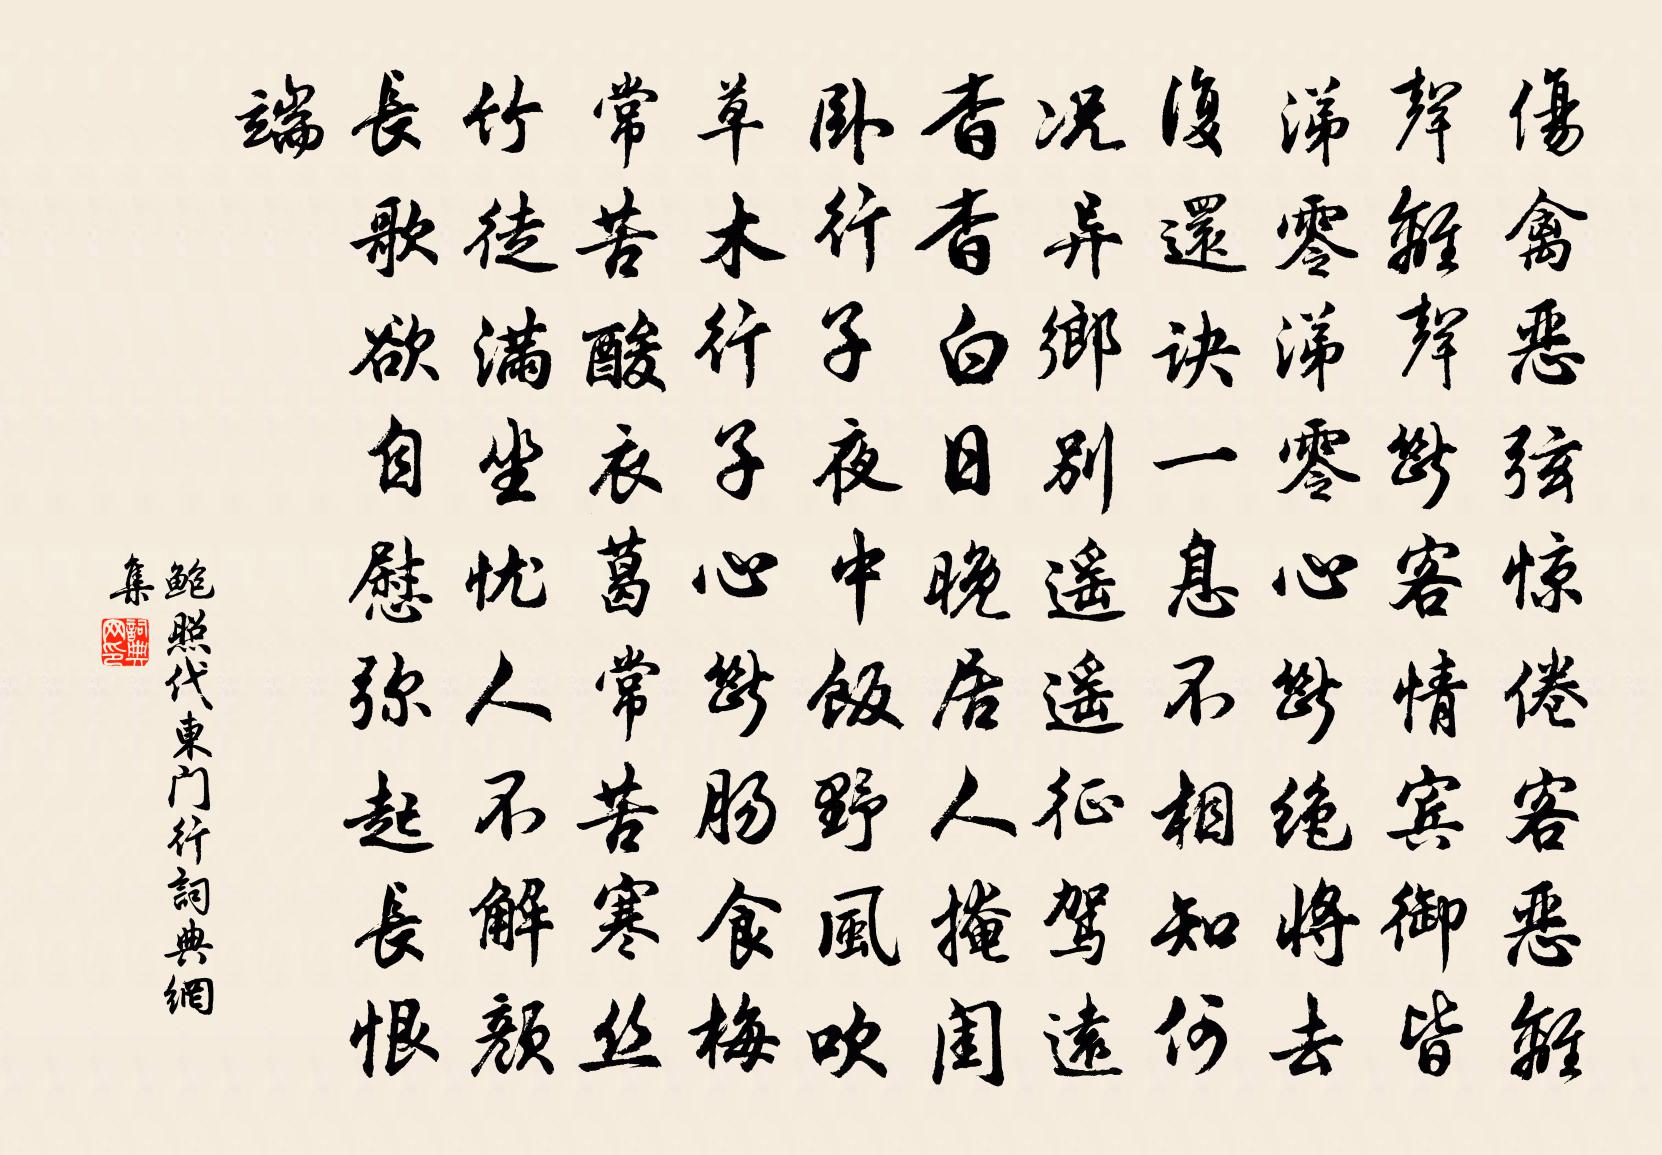 傷禽惡弦惊倦客惡離
聲離聲斷客情宾御皆
涕零涕零心斷绝將去
復還诀一息不相知何
况异鄉別遥遥征驾遠
杳杳白日晚居人掩闺
卧行子夜中飯野風吹
草木行子心斷肠食梅
常苦酸衣葛常苦寒丝
竹徒满坐忧人不解颜
長歌欲自慰弥起長恨
端
鲍照代東门行詞典網
集
詞典网印